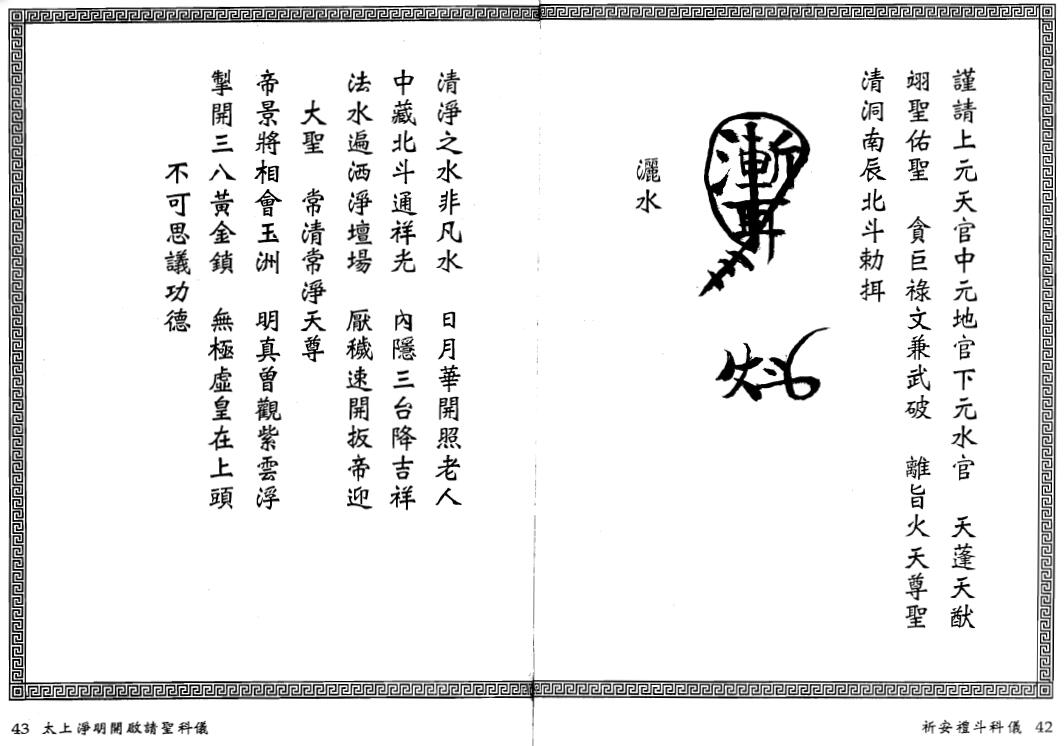 謹請上元天官中元地官下元水官　天蓬天猷
翊聖佑聖　貪巨祿文兼武破　離旨火天尊聖
清洞南辰北斗勅挕
灑水
祈安禮斗科儀 42
清淨之水非凡水　日月華開照老人
中藏北斗通祥光　內隱三台降吉祥
法水遍洒淨壇場　厭穢速開扳帝迎
大聖　常清常淨天尊
帝景將相會玉洲　明真曾觀紫雲浮
掣開三八黃金鎖　無極虛皇在上頭
不可思議功德
43 太上淨明開啟請聖科儀